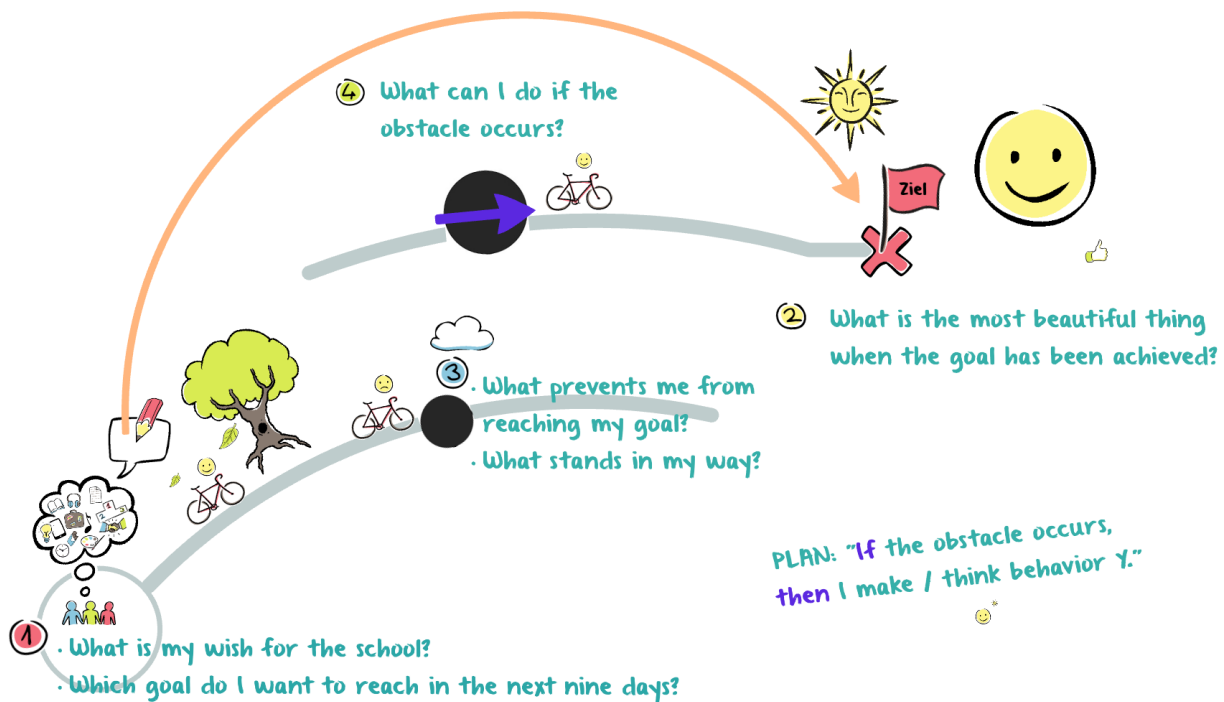 4 What can I do if the
obstacle occurs?
Ziel
2 What is the most beautiful thing
when the goal has been achieved?
3
· What prevents me from
reaching my goal?
· What stands in my way?
PLAN: "If the obstacle occurs,
then I make / think behavior Y."
1
· What is my wish for the school?
· Which goal do I want to reach in the next nine days?